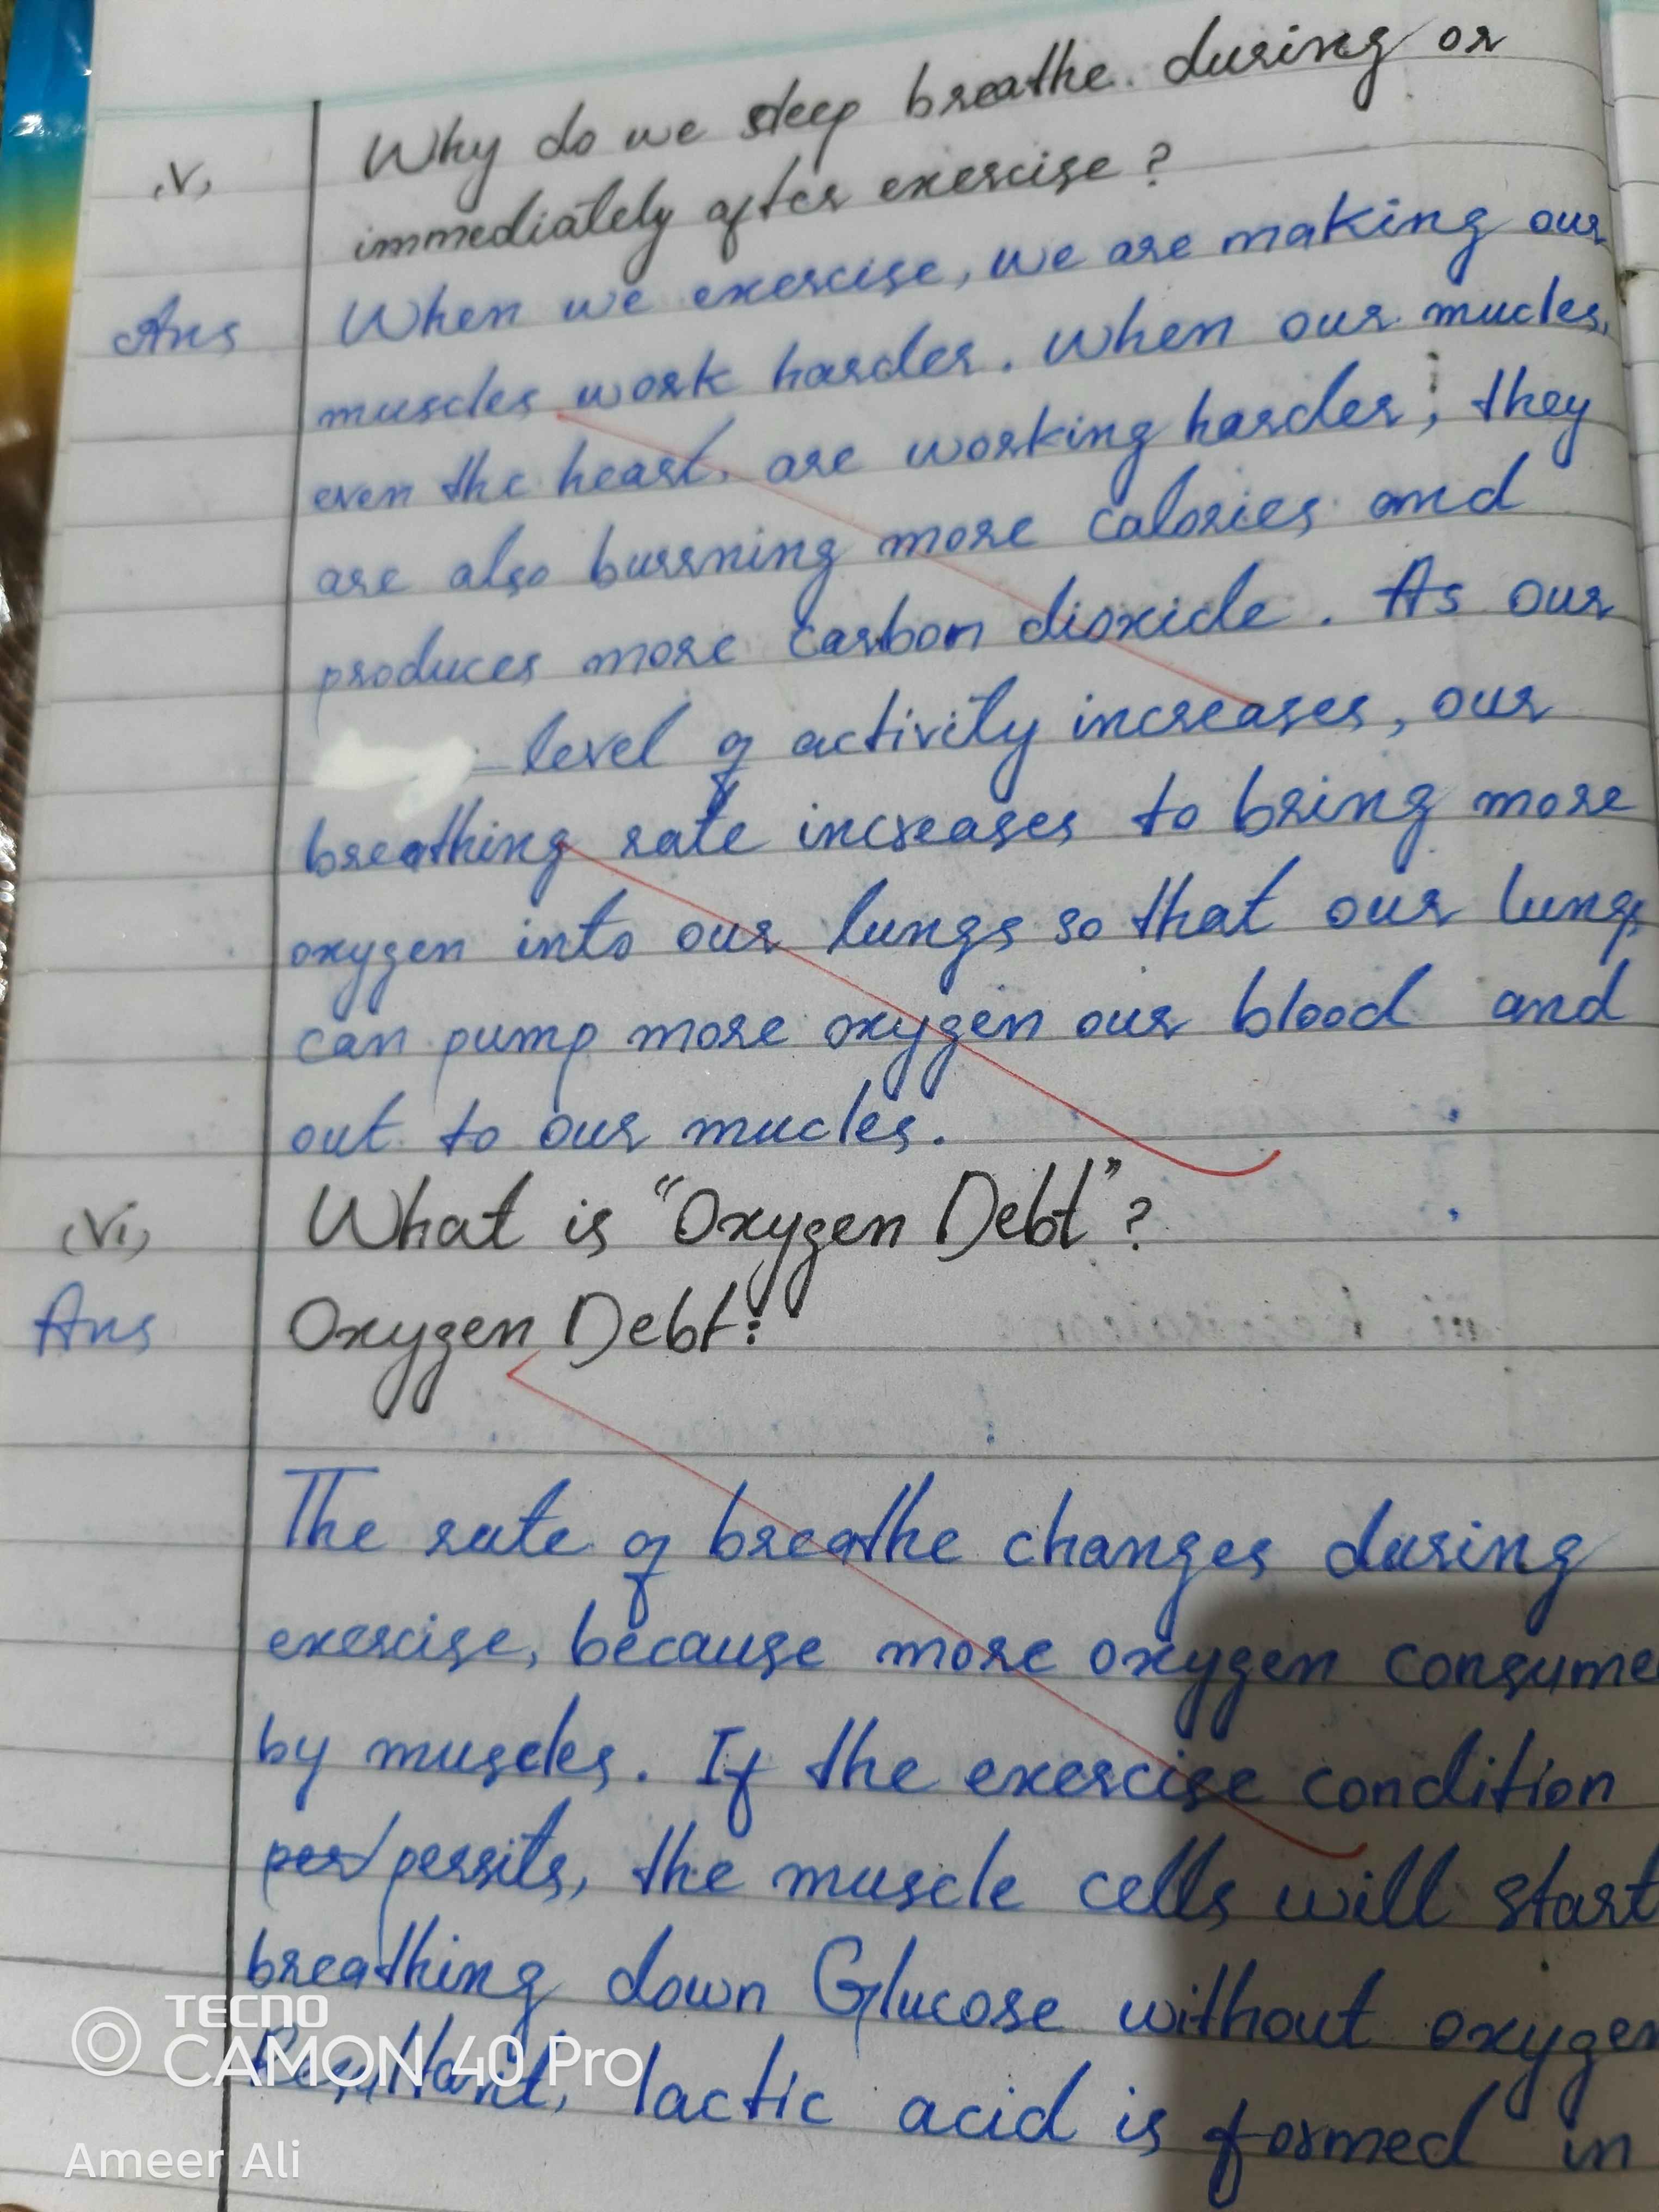 (v) Why do we deep breathe during or
immediately after exercise?
Ans When we exercise, we are making our
muscles work harder. When our mucles,
even the heart, are working harder, they
are also burrning more calories and
produces more carbon dioxide. As our
level of activity increases, our
breathing rate increases to bring more
oxygen into our lungs so that our lungs
can pump more oxygen our blood and
out to our mucles.
(vi) What is "Oxygen Debt"?
Ans Oxygen Debt:
The rate of breathe changes during
exercise, because more oxygen consume
by muscles. If the exercise condition
per persits, the muscle cells will start
breathing down Glucose without oxygen
Resultant, lactic acid is formed in
TECNO
CAMON 40 Pro
Ameer Ali